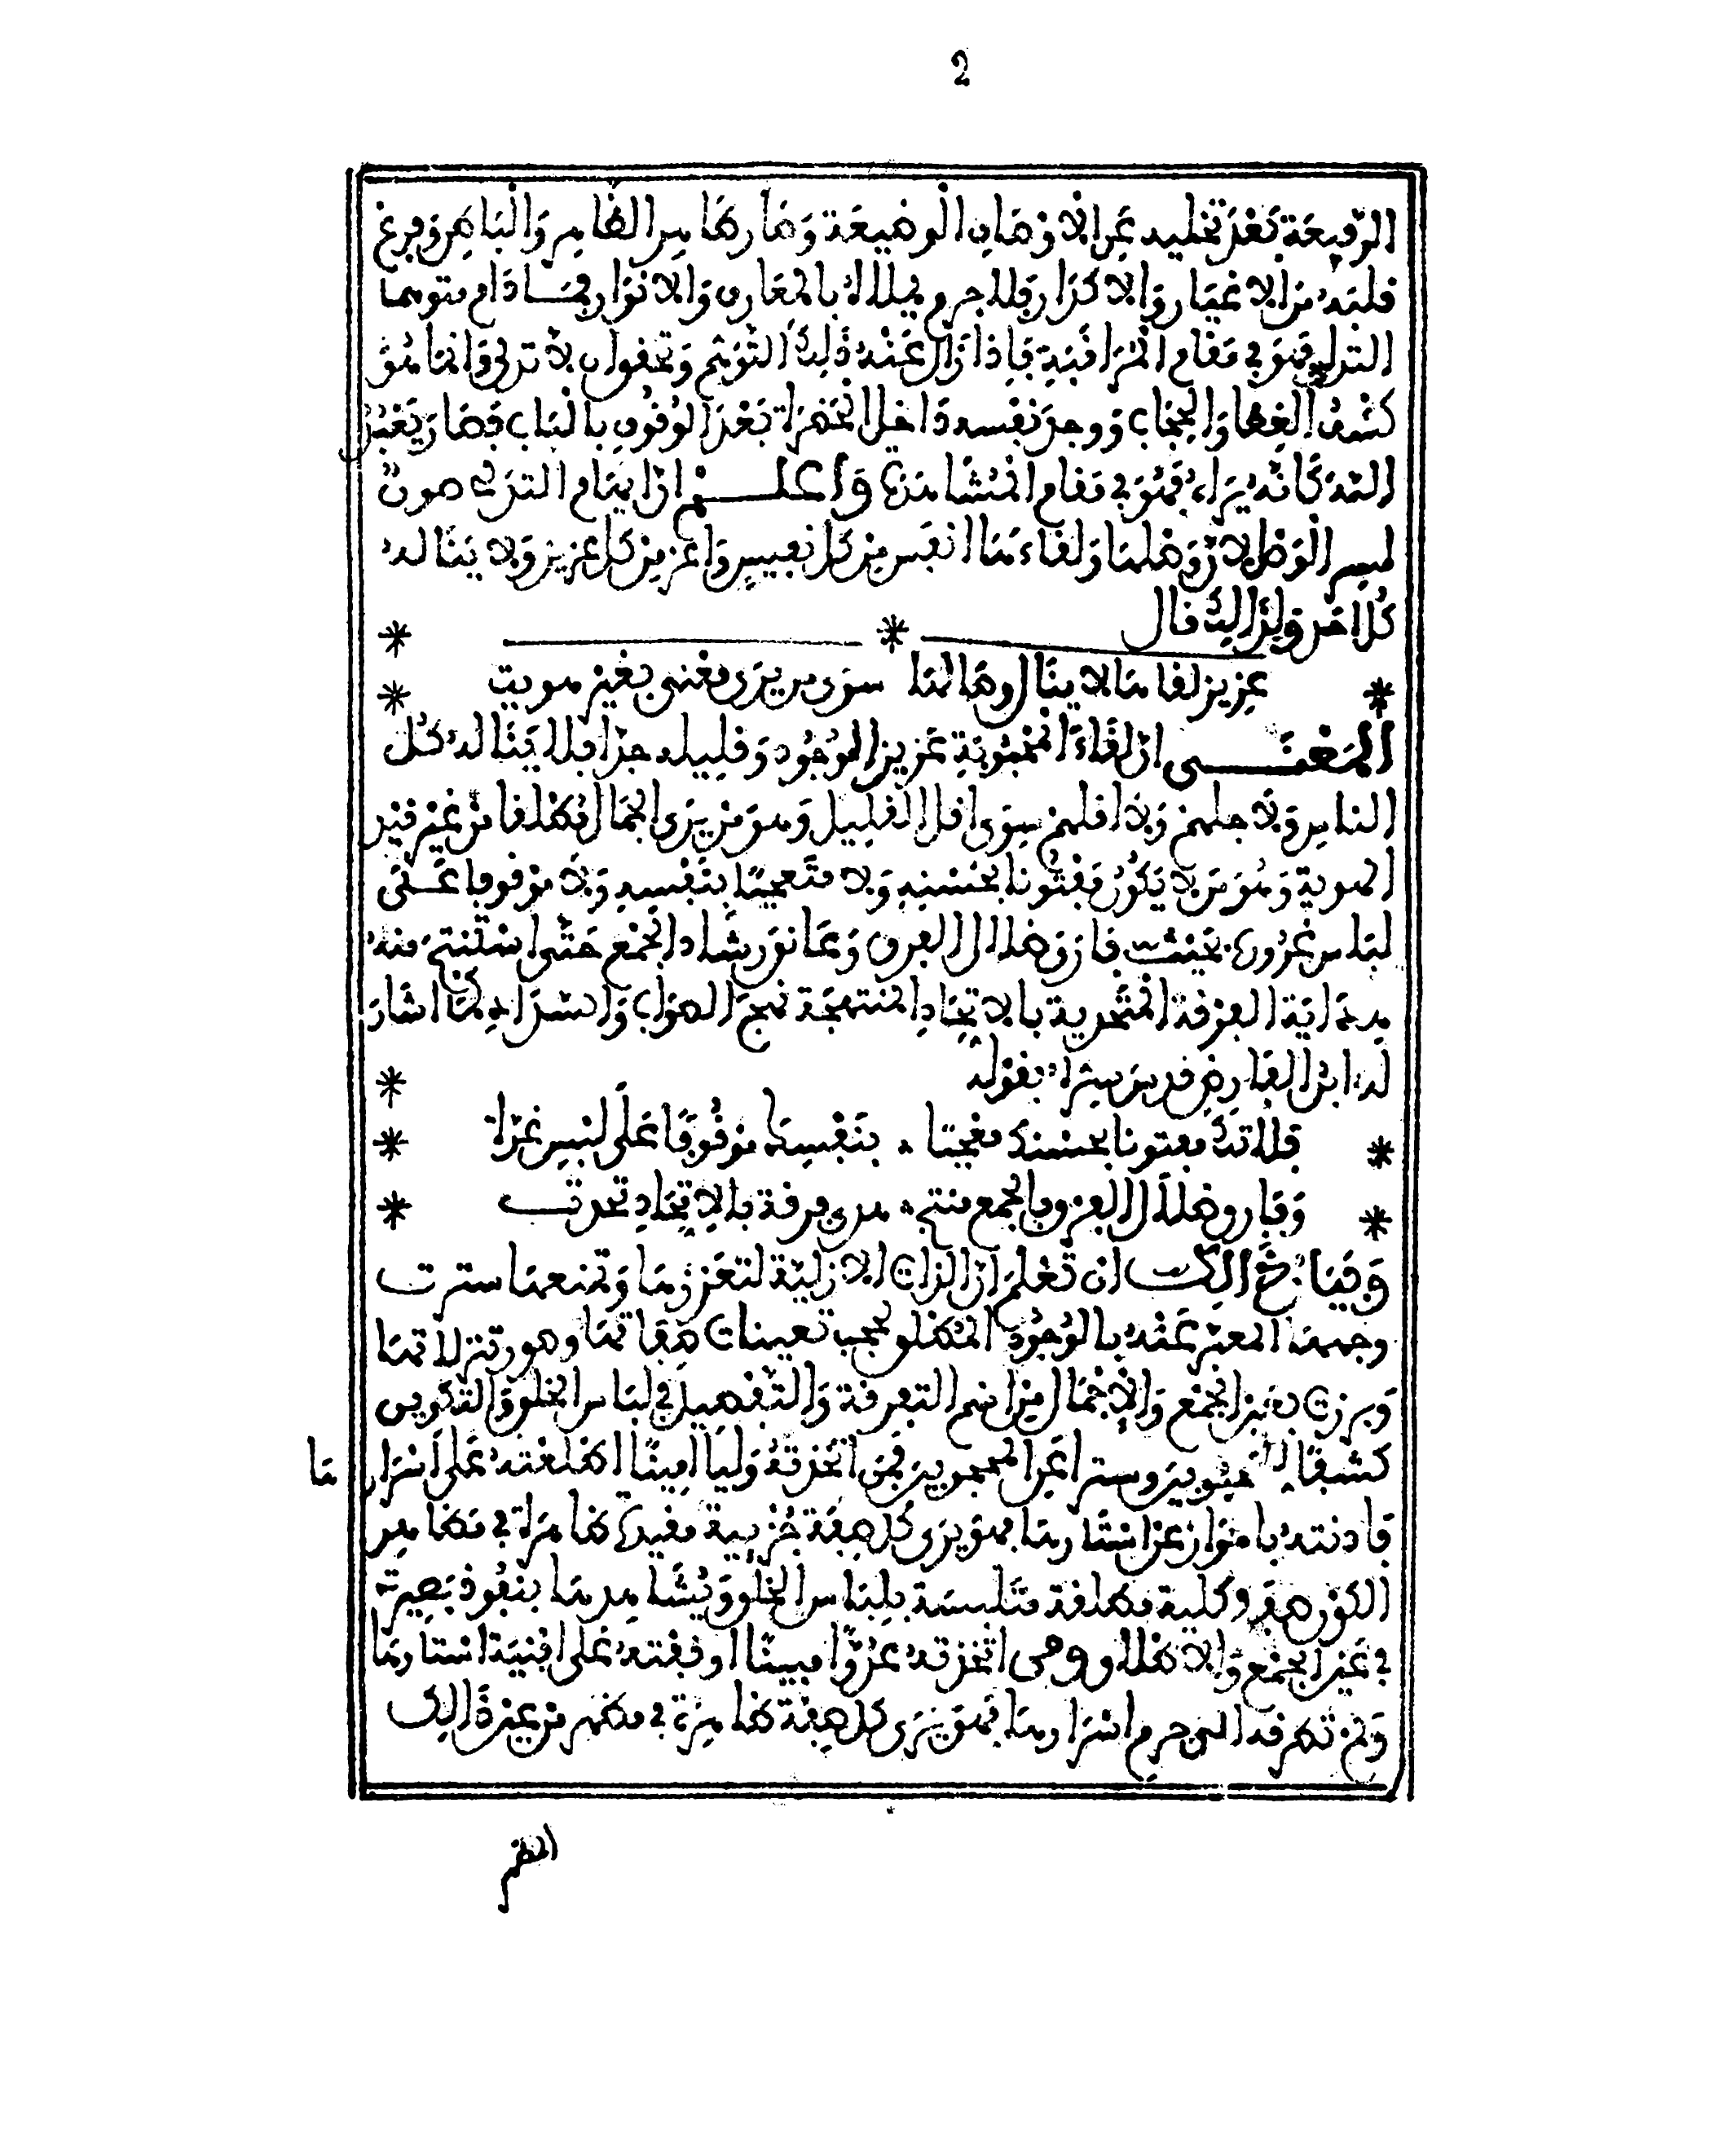 2
الرفيعة بعد تخليه عن الاوصاف الوضيعة وصار طاهر الظاهر والباطن وفرغ
قلبه من الاغيار والاكدار فلا جرم يملا بالمعارف والانوار فما دام متوهما
التدلي فهو في مقام المراقبة فاذا زال عنه ذلك التوهم وتحقق ان لا تدلي وانما هو
كشف الغطا والحجاب ووجد نفسه داخل الحضرة بعد الوقوف بالباب فصار يعبد
الله كانه يراه فهو في مقام المشاهدة واعلم ان ايام التدلي صون
ليسر الوصل لان وصلها ولقاءها انفس من كل نفيس واعز من كل عزيز ولا يناله
كل احد ولذالك قال
عزيز لقاها لا ينال وصالها سوى من يرى معنى بغير هويت
المعنى ان لقاء المحبوبة عزيز الوجود وقليله جدا فلا يناله كل
الناس ولا جلهم ولا اقلهم سوى اقل القليل وهو من يرى الجمال مطلقا من غير قيد
الهوية وهو من لا يكون مفتونا بحسنه ولا متعجبا بنفسه ولا موقوفا على
لباس غروره بحيث فارق ضلال الفرق وعانق رشاد الجمع حتى استنتج منه
هداية الفرقة المتحدية بالاتحاد المنتهجة نهج الصواب والسداد كما اشار
له ابن الفارض قدس سره بقوله
فلا تك مفتونا بحسنك معجبا بنفسك موقوفا على لبس غرة
وفارق ضلال الفرق فالجمع منتج هدى فرقة بالاتحاد تحدت
وفيضاح ذالك ان تعلم ان الذات الازلية لتعززها وتمنعها سترت
وجهها المعبر عنه بالوجود المطلق بحجب تعينات صفاتها وصور تنزلاتها
وبرزت من عين الجمع والاجمال من اسم التفرقة والتفصيل في لباس الخلق والتكوين
كشفا للمحبوبين وسترا عن المحجوبين فمن اتخذته وليا امينا اطلعته على اسرارها
فاذنته بامواز عن استارها فهو يرى كل صفة جزيية مقيدة ظاهرة في مظاهر
الكون صفة كلية مطلقة متلبسة بلباس الخلق ويشاهدها بنفوذ بصيرته
في عين الجمع والاطلاق ومن اتخذته عدوا مبينا اوقفته على افنية استارها
ولم تطرفه الى حرم اسرارها فهو يرى كل صفة ظاهرة في مظهر من عين ذالك
المظهر